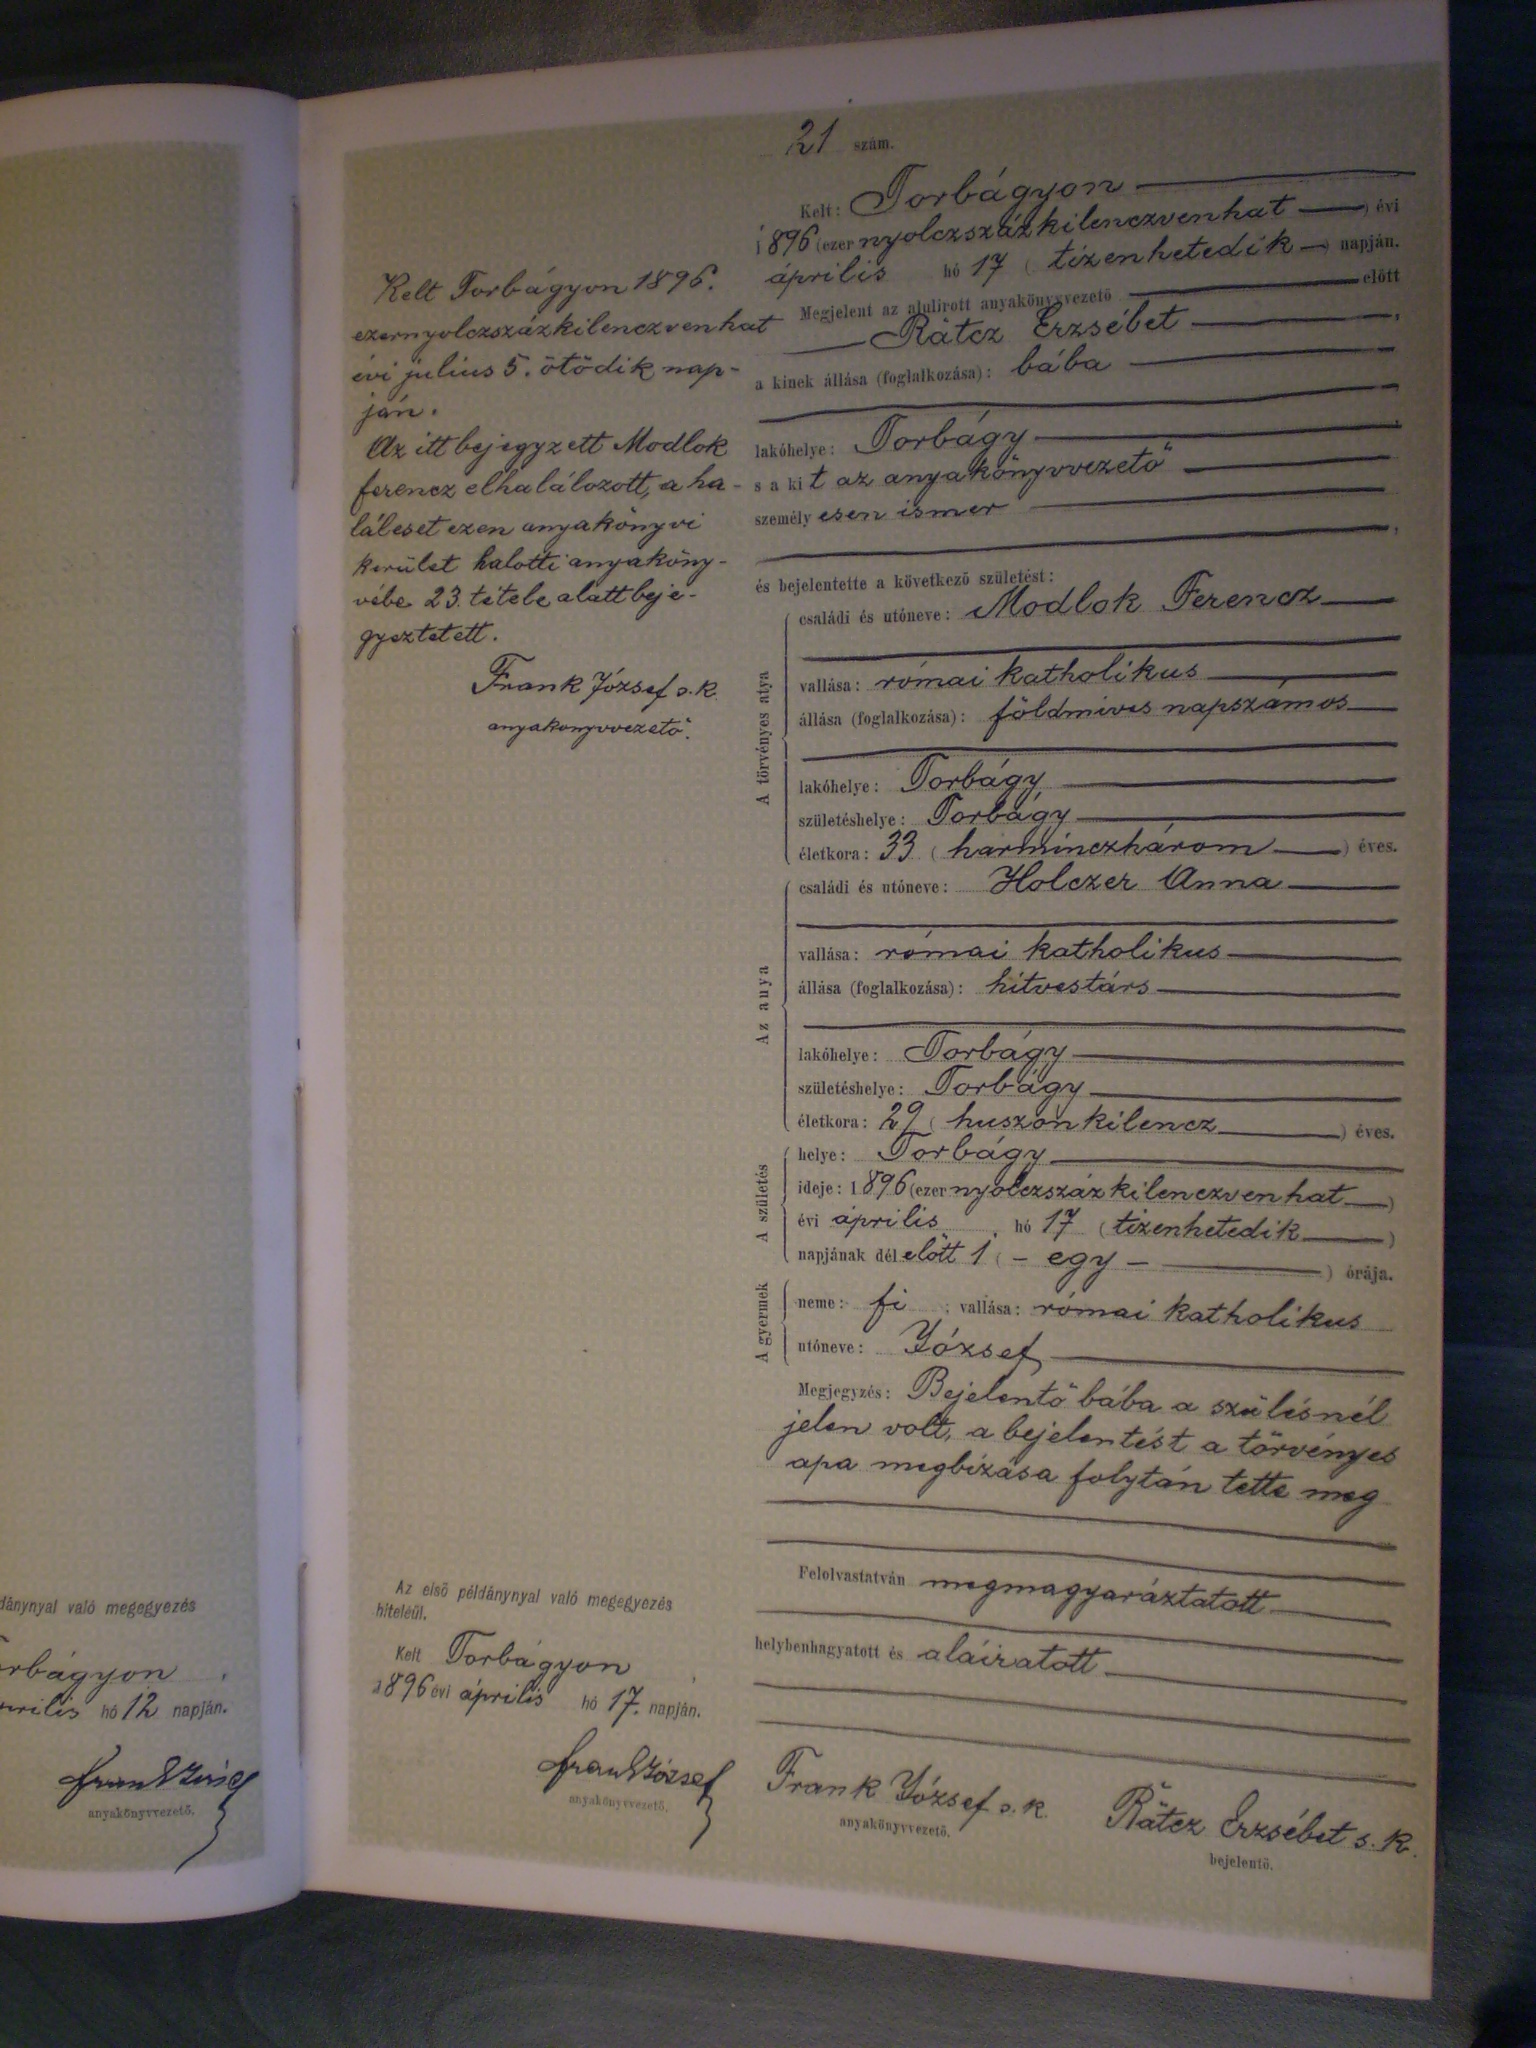 21 szám.
Kelt: Torbágyon
1896 (ezer nyolczszázkilenczvenhat) évi
április hó 17 (tizenhetedik) napján.
Megjelent az alulirott anyakönyvvezető előtt
Rátcz Erzsébet,
a kinek állása (foglalkozása): bába
lakóhelye: Torbágy
s a kit az anyakönyvvezető
személyesen ismer
és bejelentette a következő születést:
A törvényes atya
családi és utóneve: Modlok Ferencz
vallása: római katholikus
állása (foglalkozása): földmives napszámos
lakóhelye: Torbágy
születéshelye: Torbágy
életkora: 33 (harminczhárom) éves.
Az anya
családi és utóneve: Holczer Anna
vallása: római katholikus
állása (foglalkozása): hitvestárs
lakóhelye: Torbágy
születéshelye: Torbágy
életkora: 29 (huszonkilencz) éves.
A születés
helye: Torbágy
ideje: 1896 (ezer nyolczszázkilenczvenhat)
évi április hó 17 (tizenhetedik)
napjának délelőtt 1 (- egy -) órája.
A gyermek
neme: fi; vallása: római katholikus
utóneve: József
Megjegyzés: Bejelentő bába a szülésnél
jelen volt, a bejelentést a törvényes
apa megbizása folytán tette meg
Felolvastatván megmagyaráztatott
helybenhagyatott és aláiratott
Frank József s. k.
anyakönyvvezető.
Rátcz Erzsébet s. k.
bejelentő.
Kelt Torbágyon 1896.
ezernyolczszázkilenczvenhat
évi julius 5. ötödik nap-
ján.
Az itt bejegyzett Modlok
ferencz elhalálozott, a ha-
láleset ezen anyakönyvi
kerület halotti anyaköny-
vébe 23. tétele alatt beje-
gyeztetett.
Frank József s. k.
anyakonyvvezető.
Az első példánynyal való megegyezés
hiteléül.
Kelt Torbágyon
1896 évi április hó 17. napján.
Frank József
anyakönyvvezető.
dánynyal való megegyezés
orbágyon
prilis hó 12 napján.
Frank József
anyakönyvvezető.